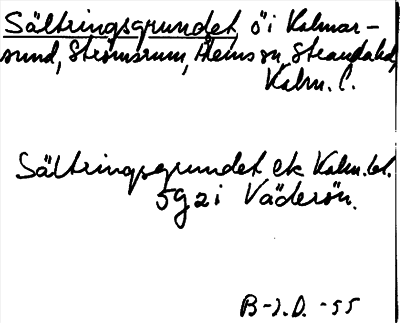 Sältringsgrundet, ö i Kalmar-
sund, Strömsrum, Ålems sn, Stranda hd,
Kalm. l.
Sältringsgrundet ek Kalm. l.
5g2i Väderön.
B-J.D. -55